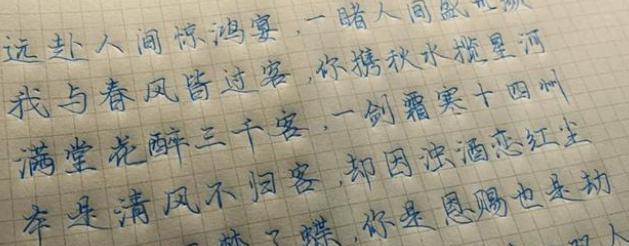 远赴人间惊鸿宴,一睹人间盛
我与春风皆过客,你携秋水揽星河
满堂花醉三千客,一剑霜寒十四州
本是清风不归客,却因浊酒恋红尘
梦了蝶,你是恩赐也是劫